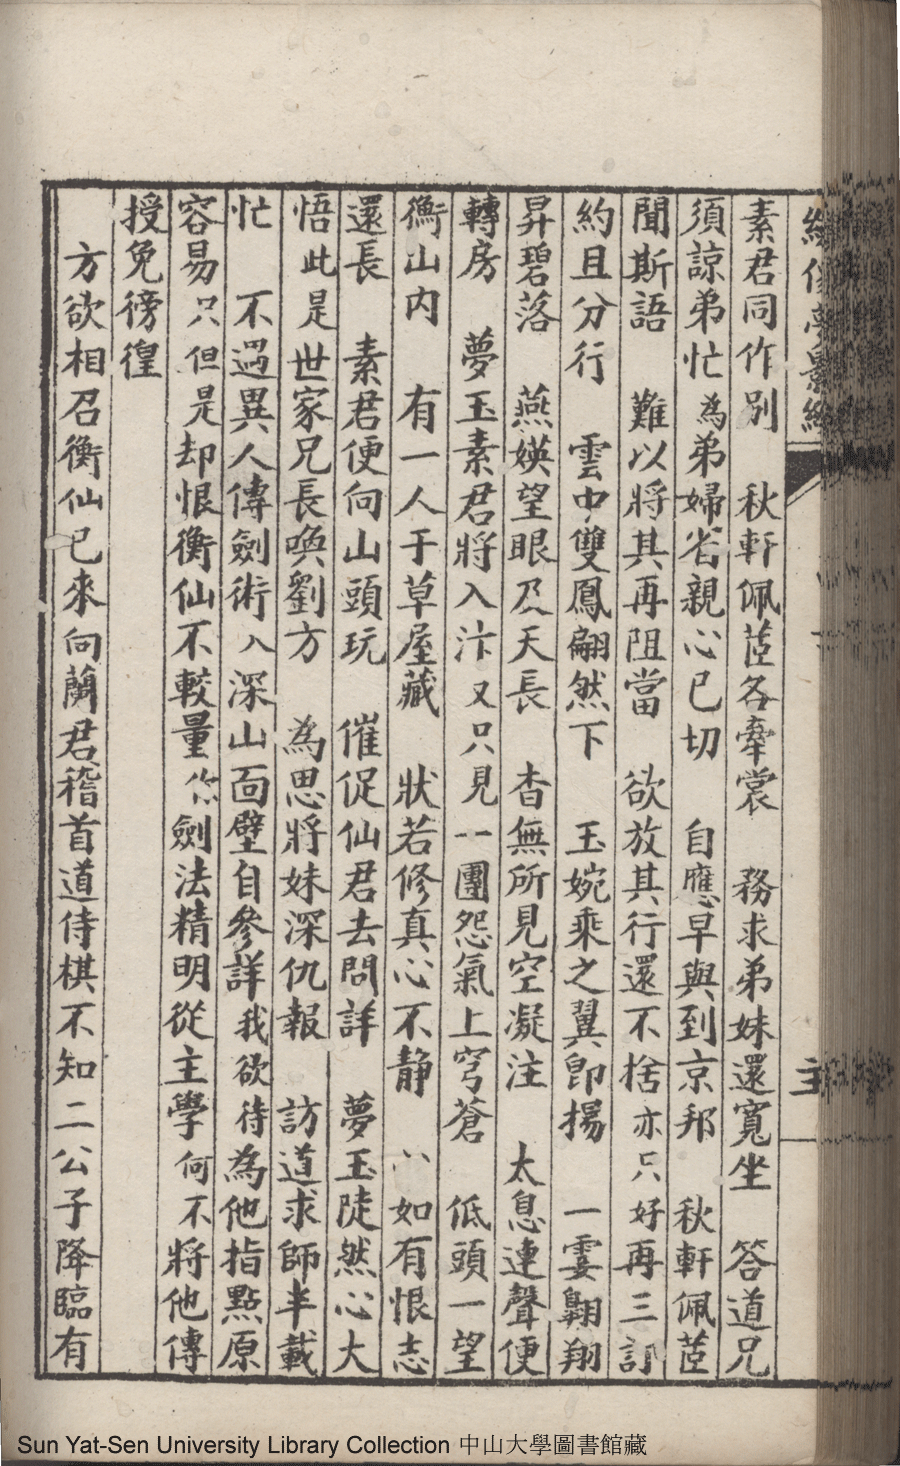 素君同作別　秋軒佩茝各牽裳　務求弟妹還寬坐　答道兄
須諒弟忙為弟婦省親心已切　自應早與到京邦　秋軒佩茝
聞斯語　難以將其再阻當　欲放其行還不捨亦只好再三訂
約且分行　雲中雙鳳翩然下　玉婉乘之翼即揚　一霎翱翔
昇碧落　燕媖望眼及天長　杳無所見空凝注　太息連聲便
轉房　夢玉素君將入汴又只見一團怨氣上穹蒼　低頭一望
衡山內　有一人于草屋藏　狀若修真心不静　如有恨志
還長　素君便向山頭玩　催促仙君去問詳　夢玉陡然心大
悟此是世家兄長喚劉方　為思將妹深仇報　訪道求師半載
忙　不遇異人傳劍術入深山面壁自參詳我欲待為他指點原
容易只但是却恨衡仙不較量你劍法精明從主學何不將他傳
授免徬徨
方欲相召衡仙已來向蘭君稽首道侍棋不知二公子降臨有
Sun Yat-Sen University Library Collection 中山大學圖書館藏